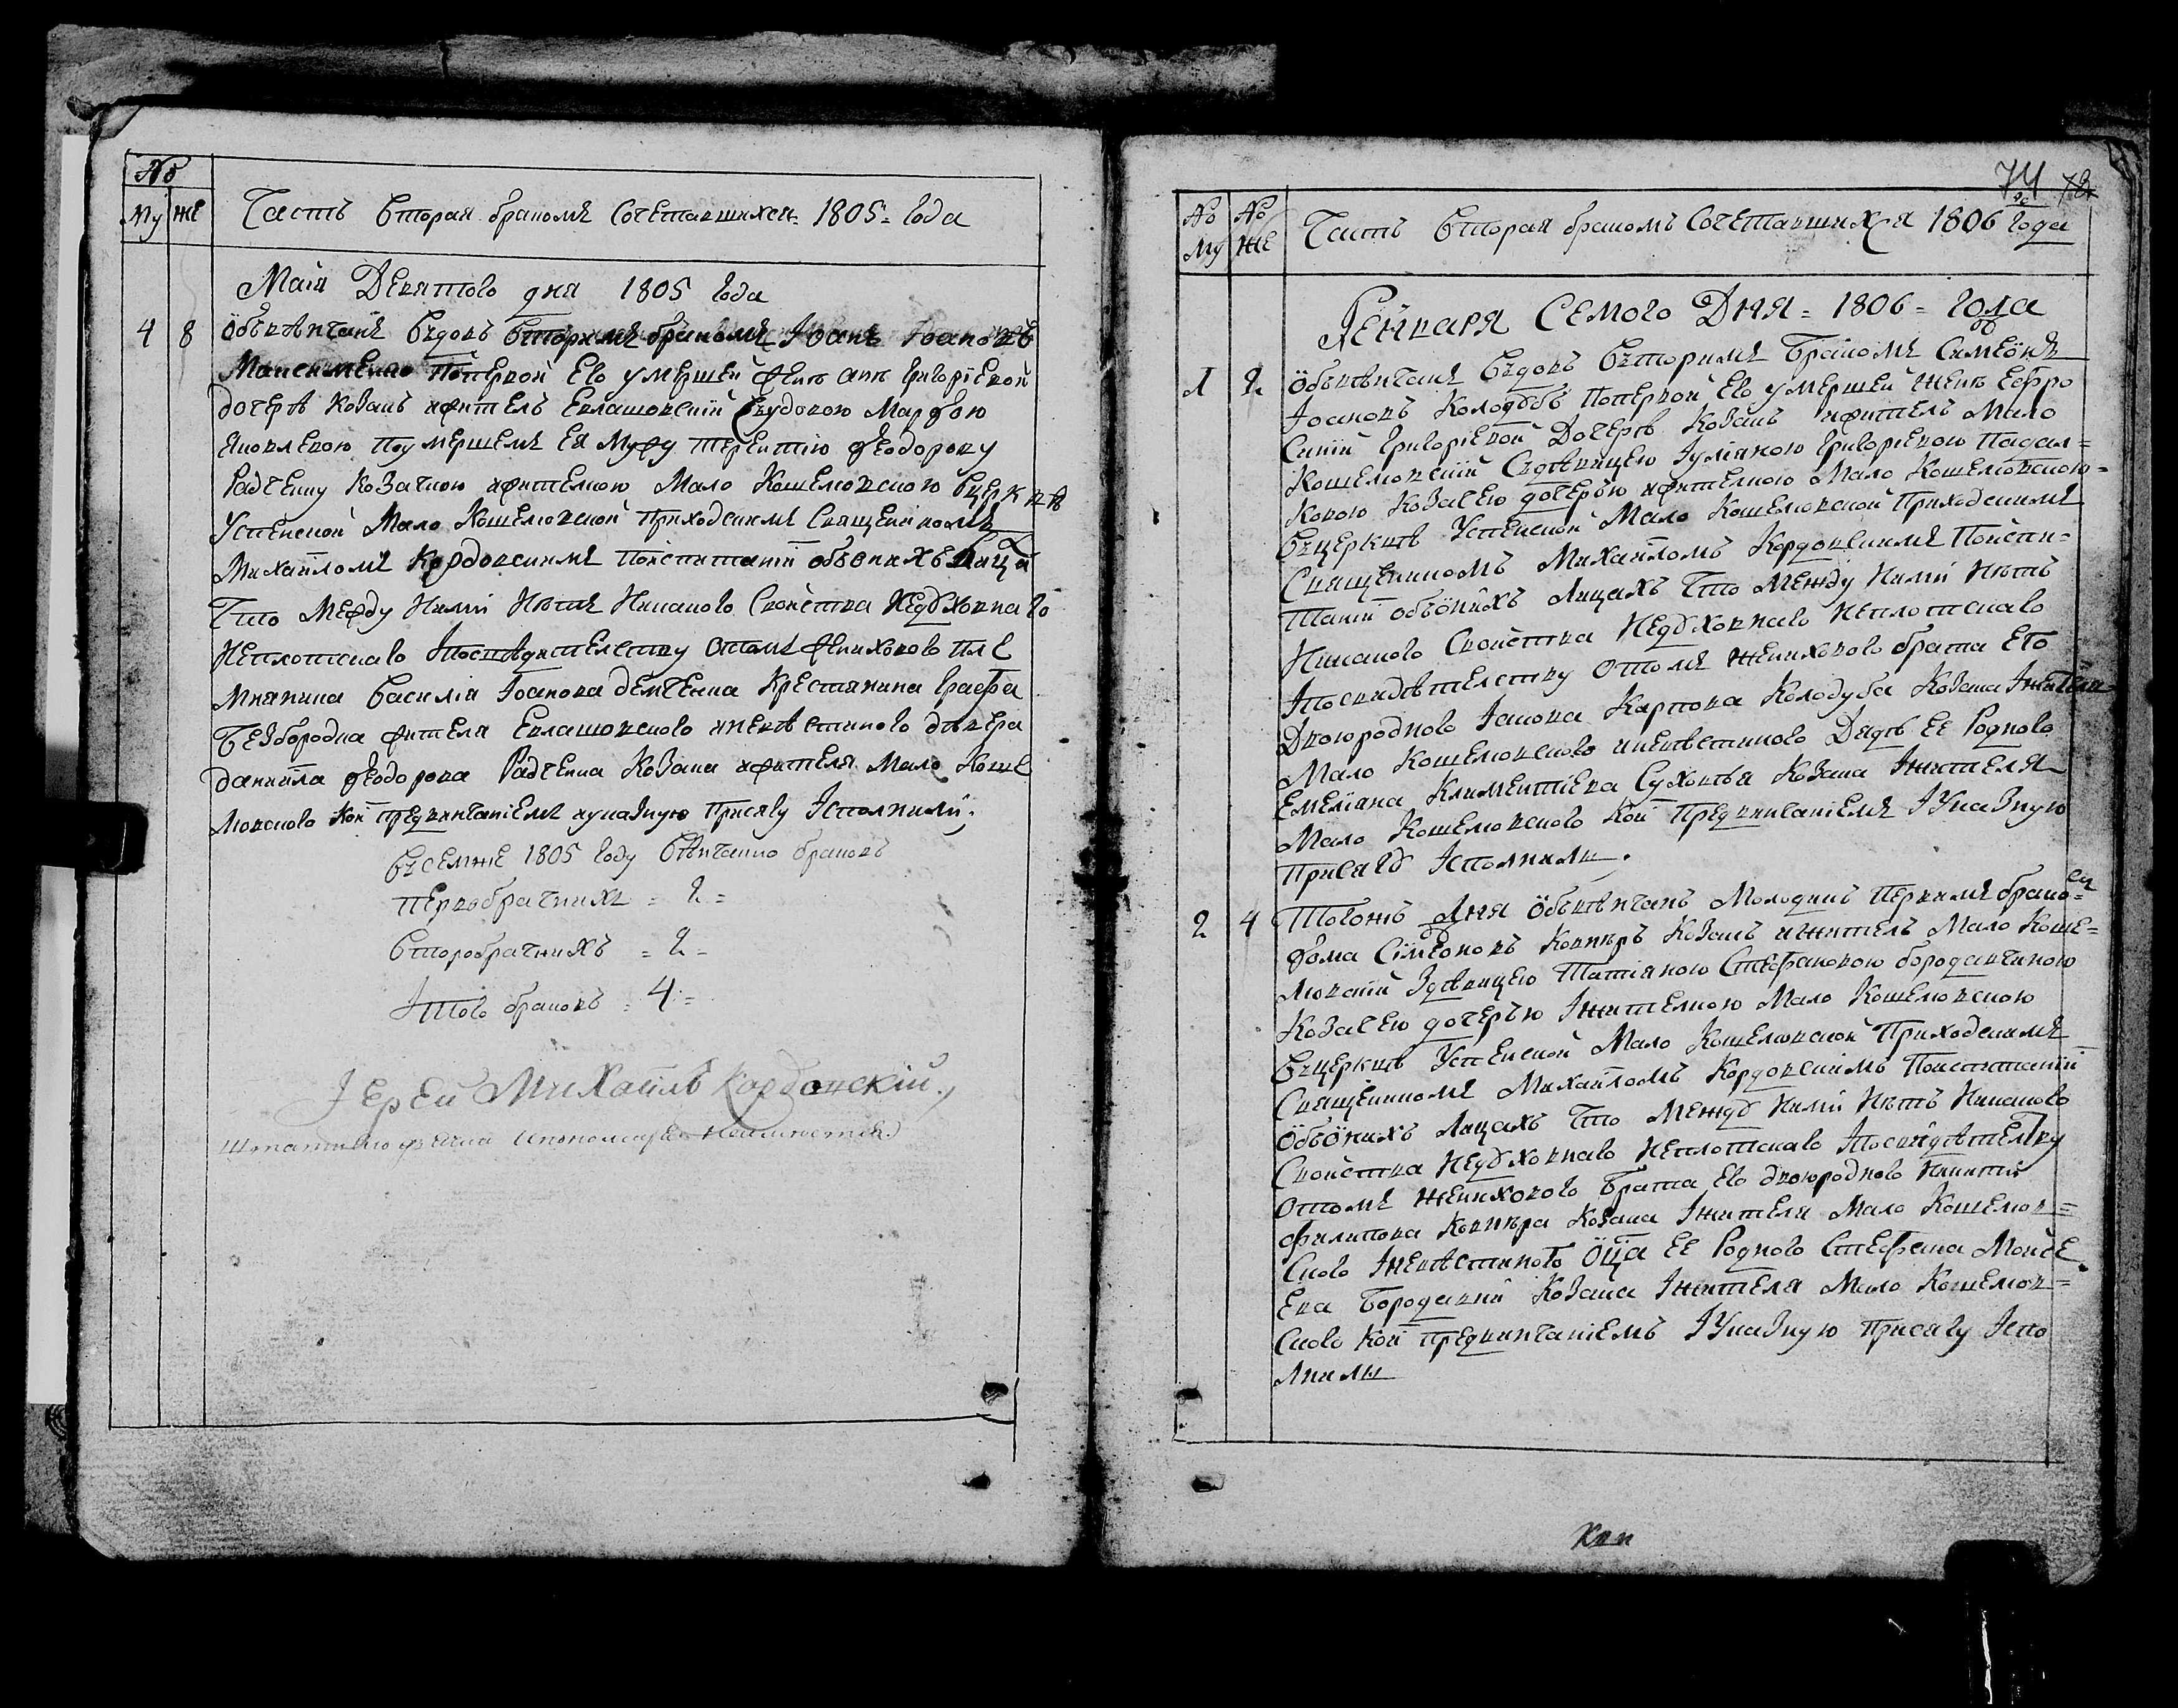 №
Му же Часть вторая бракомъ сочетавшихся 1805 года
Маія девятого дня 1805 года
4 8 Объвѣнчанъ вдовъ вторимъ бракомъ Іоанъ Іоановъ
Максименко попервой его умершей женѣ аннѣ григоріевой
дочерѣ козакъ ижитель евлашовскій свудовою марфою
яковлевою поумершемъ ея мужу терентію феодорову
Радченку козачкою ижителкою мало кошелювскою вцерквѣ
Успенской мало кошелювской приходскимъ священникомъ
Михайломъ Кордовскимъ поиспитаніи объонихъ лицахъ
что между ними нѣтъ никакого свойства недуховнаго
неплотскаго Іпосвѣдителству отомъ женихового пле
мянника василія Іоанова демченка крестянина графа
безбородка жителя евлашовского иневѣстиного дѣвера
даниила феодорова Радченка козака ижителя мало коше
лювского кои предвинчаніемъ иуказную присягу Ісполнили;
Всемже 1805 году вѣнчанно браковъ
первобрачнихъ = 2 =
второбрачнихъ = 2 =
Ітого браковъ = 4 =
Іерей Михаилъ Кордовскій
74
№ му № же Часть вторая бракомъ сочетавшихся 1806 года
Генваря семого дня = 1806 = года
1 2 Объвѣнчанъ вдовъ вторимъ бракомъ симеонъ
Іоановъ Колодубъ попервой его умершей женѣ евфро
синіи григоріевой дочерѣ козакъ ижитель мало
кошелювскій сдѣвицею Іуліяною григоріевою падал=
ковою козачею дочерью ижителкою мало кошелювскою=
вцерквѣ Успенской мало кошелювской приходскимъ
священникомъ Михайломъ Кордовскимъ поиспи=
таніи объонихъ лицахъ что между ними нѣтъ
никакого свойства недуховнаго неплотскаго
Іпосвидѣтелству отомъ женихового брата его
двоюродного Іакова Карпова Колодуба козака Іжителя
мало кошелювского иневѣстиного дядѣ ее родного
емеліяна климентіева Суховѣя козака Іжителя
мало кошелювского кои предвинчаніемъ Іуказную
присягу Ісполнили.
2 4 Тогожъ дня объвѣнчанъ молодикъ первимъ бракомъ
фома Симеоновъ Ковнѣръ козакъ ижитель мало коше=
лювскій здѣвицею татіяною стефановою бородавкиною
козачею дочерью Іжителкою мало кошелювскою
вцерквѣ Успенской мало кошелювской приходскимъ
священникомъ Михайломъ Кордовскимъ поиспитаніи
объонихъ лицахъ что между ними нѣтъ никакого
свойства недуховнаго неплотскаго Іпосвидѣтелству
отомъ женихового брата его двоюродного никити
филипова Ковнѣра козака Іжителя мало кошелюв=
ского Іневѣстиного оца ее родного стефана моисе
ева бородавки козака Іжителя мало кошелюв=
ского кои предвинчаніемъ Іуказную присягу Іспо
лнили